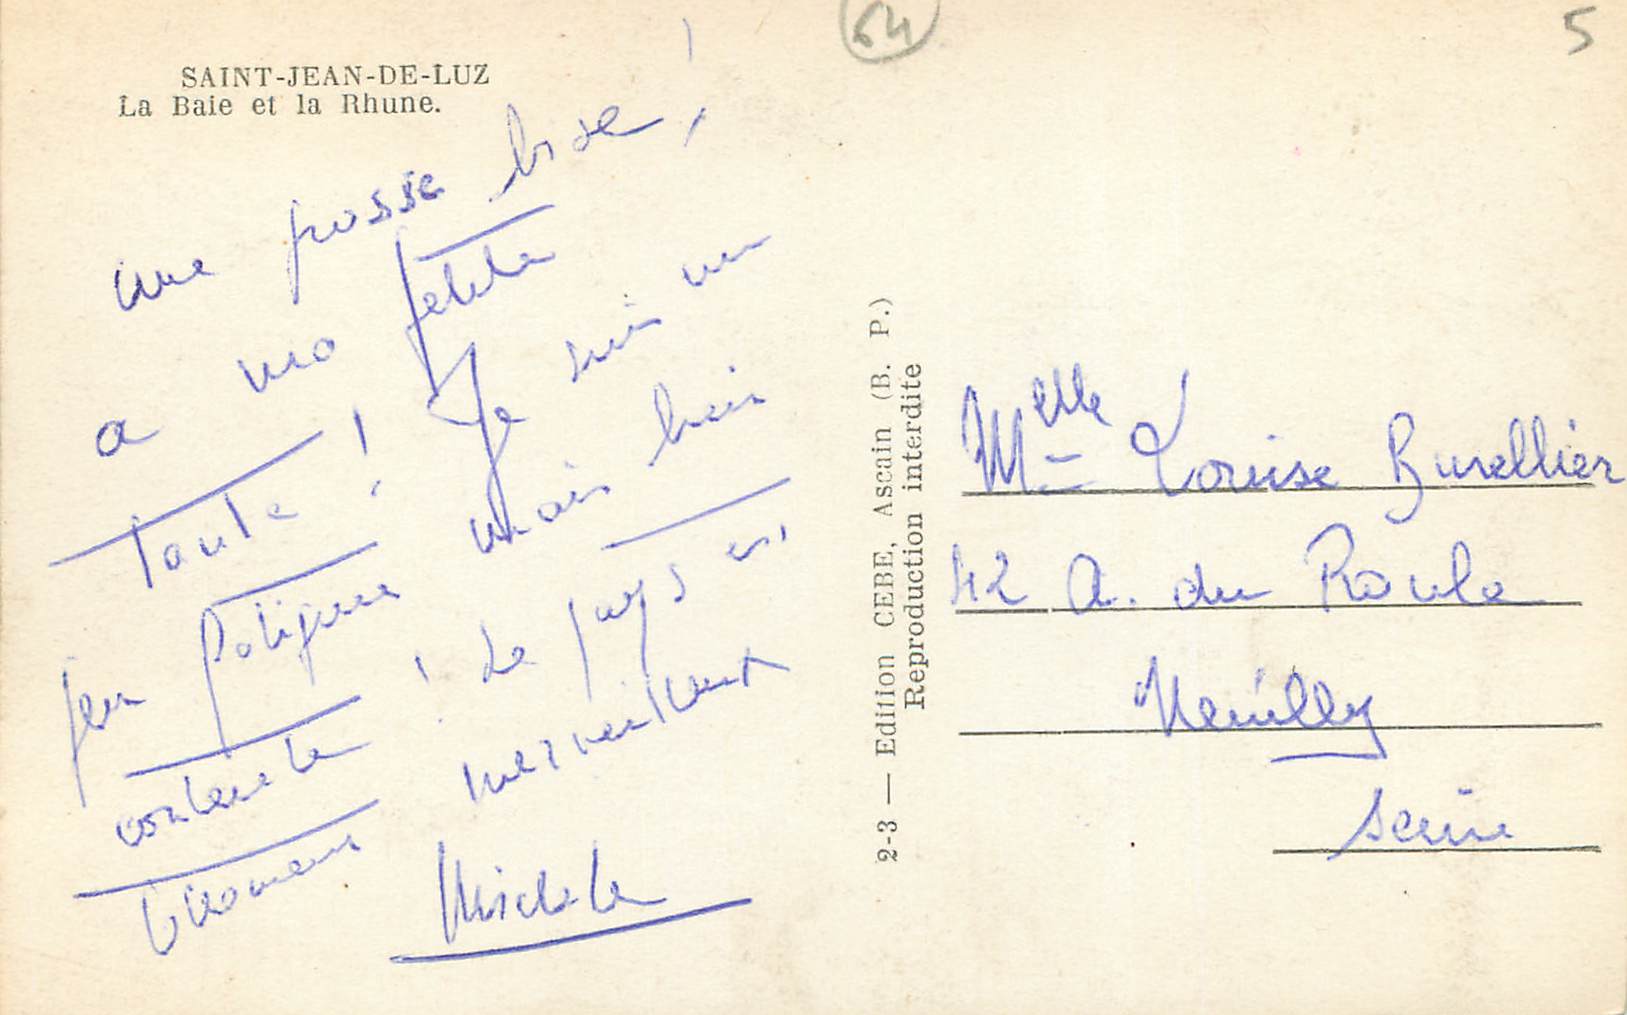 64
5
SAINT-JEAN-DE-LUZ
La Baie et la Rhune.
une grosse bise !
a ma petite
Tante ! Je suis un
peu fatiguée mais bien
contente ! Le pays est
vraiment merveilleux
Michele
2-3 — Edition CEBE, Ascain (B. P.)
Reproduction interdite
Melle Louise Burellier
42 A. du Roule
Neuilly
Seine